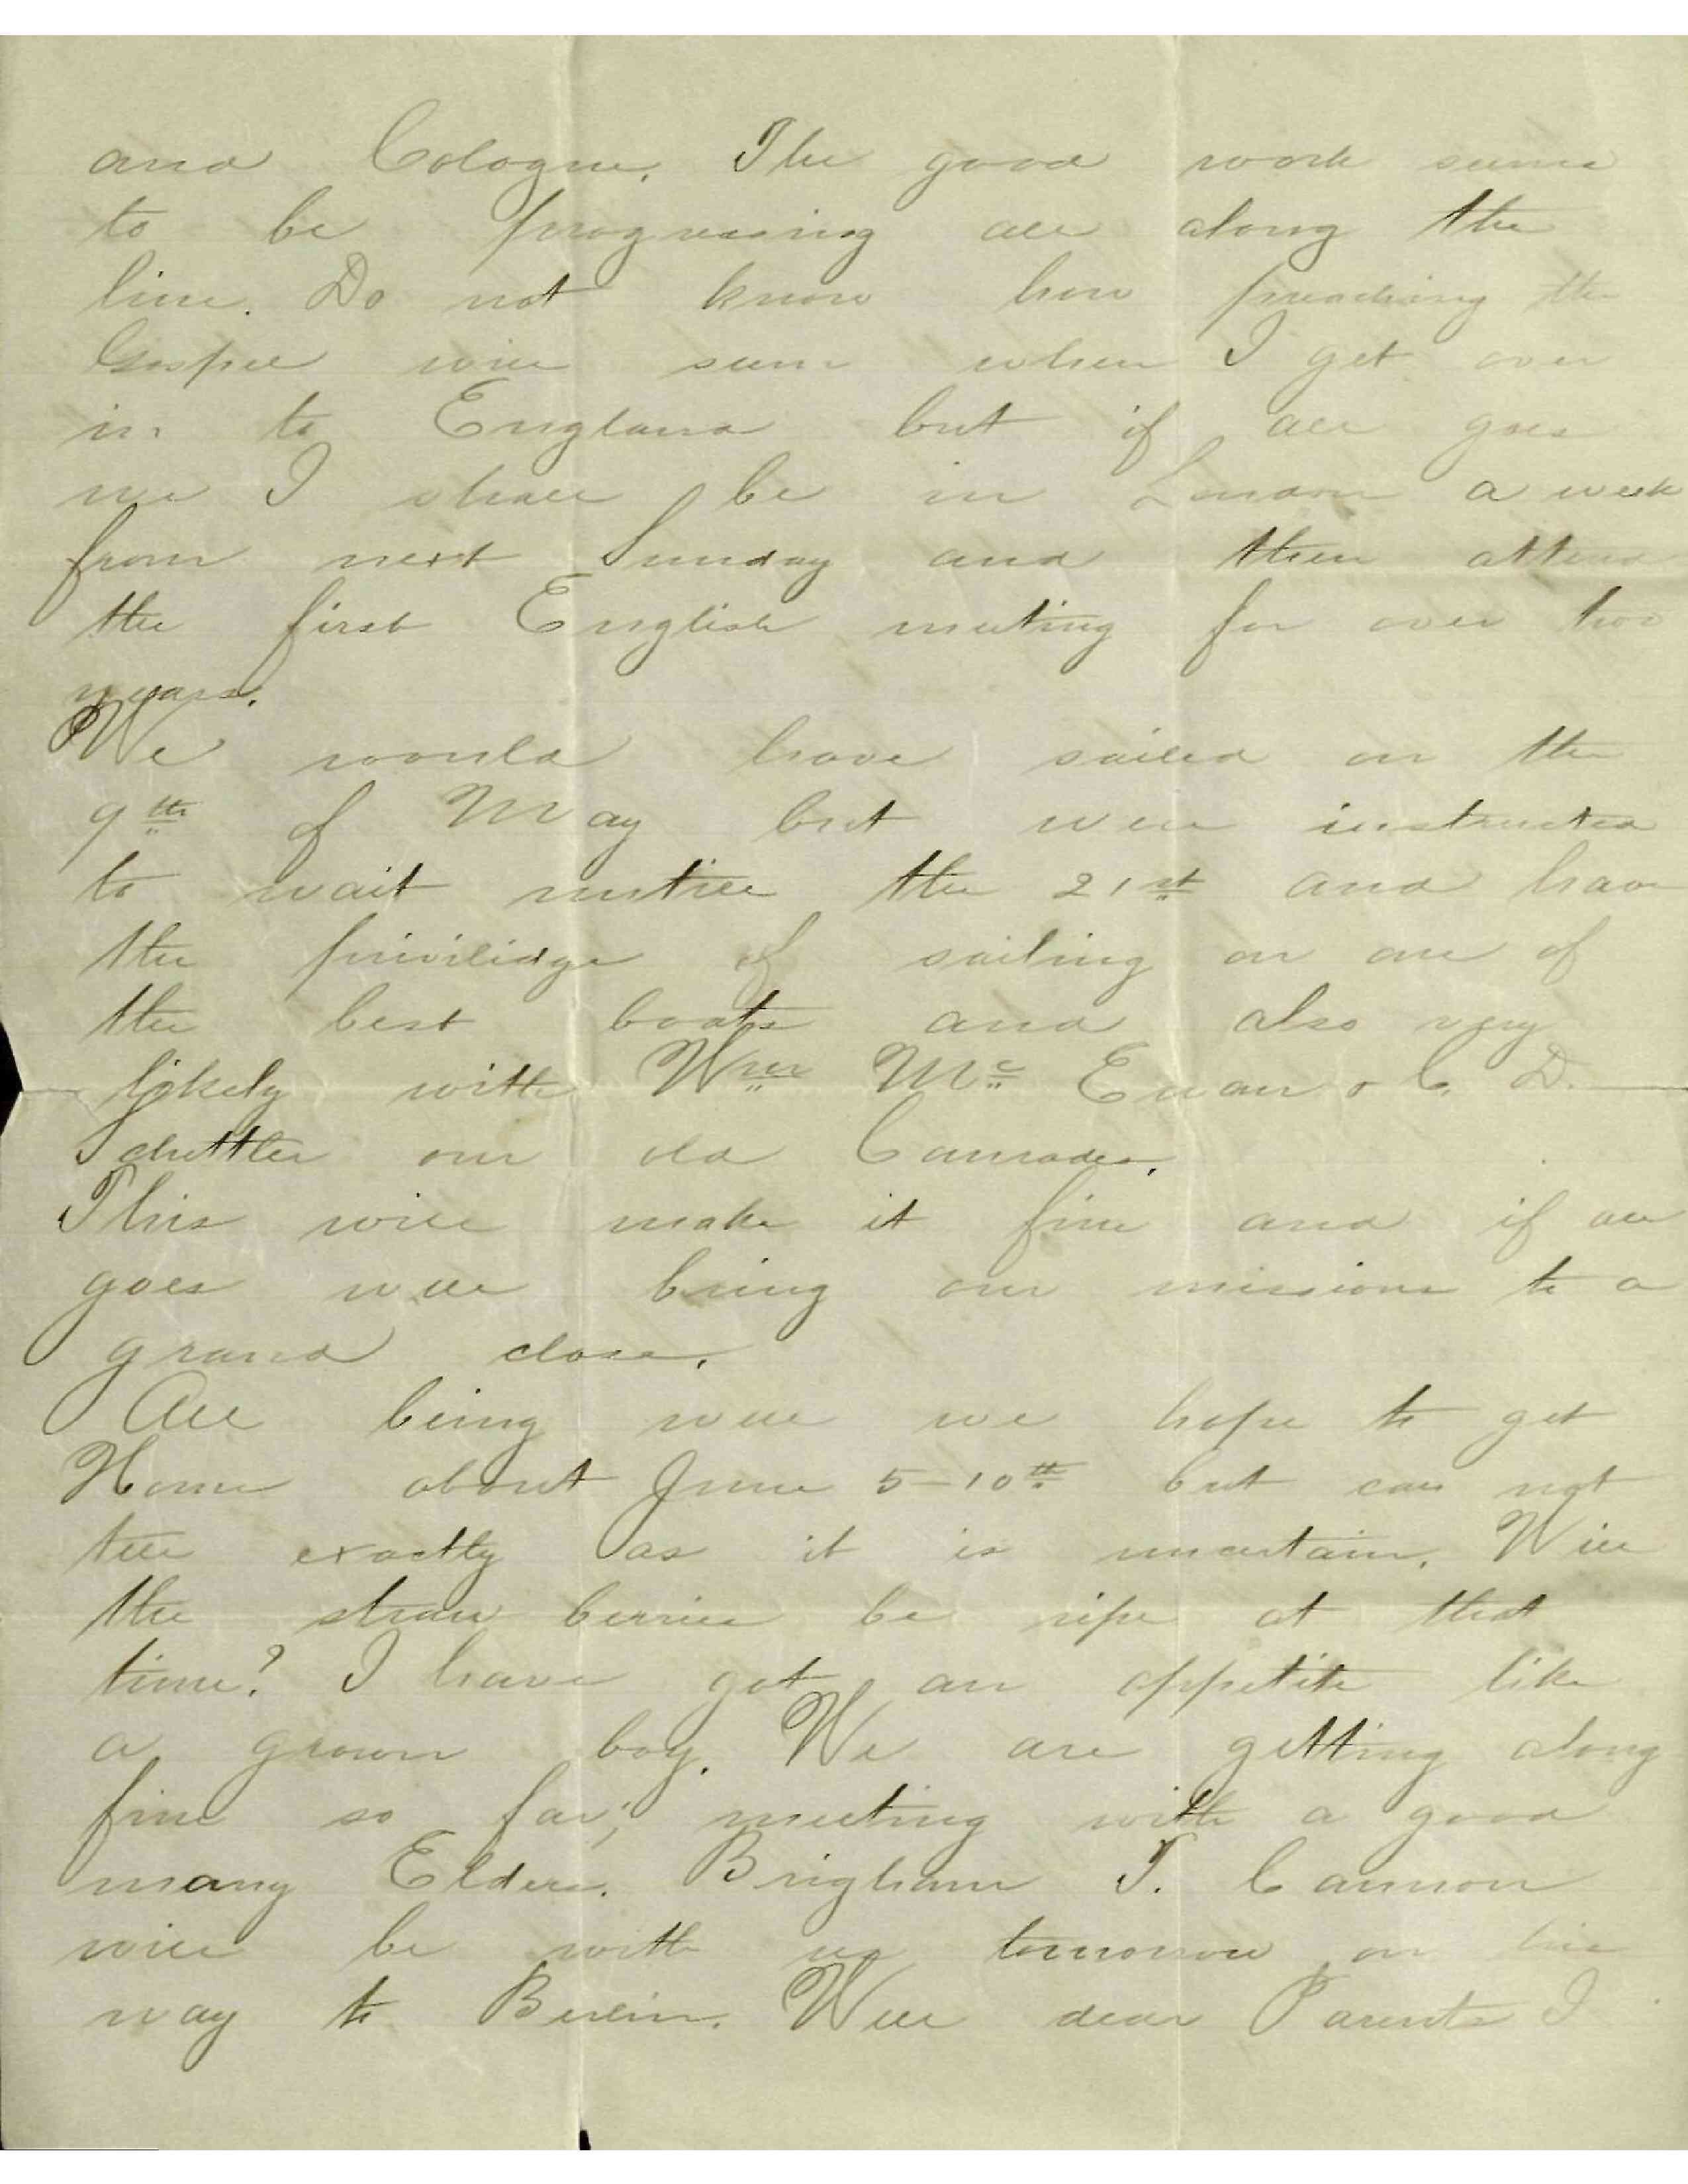 and Cologne. The good work seems
to be progressing all along the
line. Do not know how preaching the
Gospel will seem when I get over
in to England but if all goes
well I shall be in London a week
from next Sunday and then attend
the first English meeting for over two
years.
We would have sailed on the
9th of May but were instructed
to wait untill the 21st and have
the privilidge of sailing on one of
the best boats and also very
likely with Wm Mc Ewan & C. D.
Schettler our old Comrades.
This will make it fine and if all
goes well bring our missions to a
grand close.
All being well we hope to get
Home about June 5-10th but can not
tell exactly as it is uncertain. Will
the straw berries be ripe at that
time? I have got an appetite like
a grown boy. We are getting along
fine so far, meeting with a good
many Elders. Brigham T. Cannon
will be with us tomorrow on his
way to Berlin. Well dear Parents I